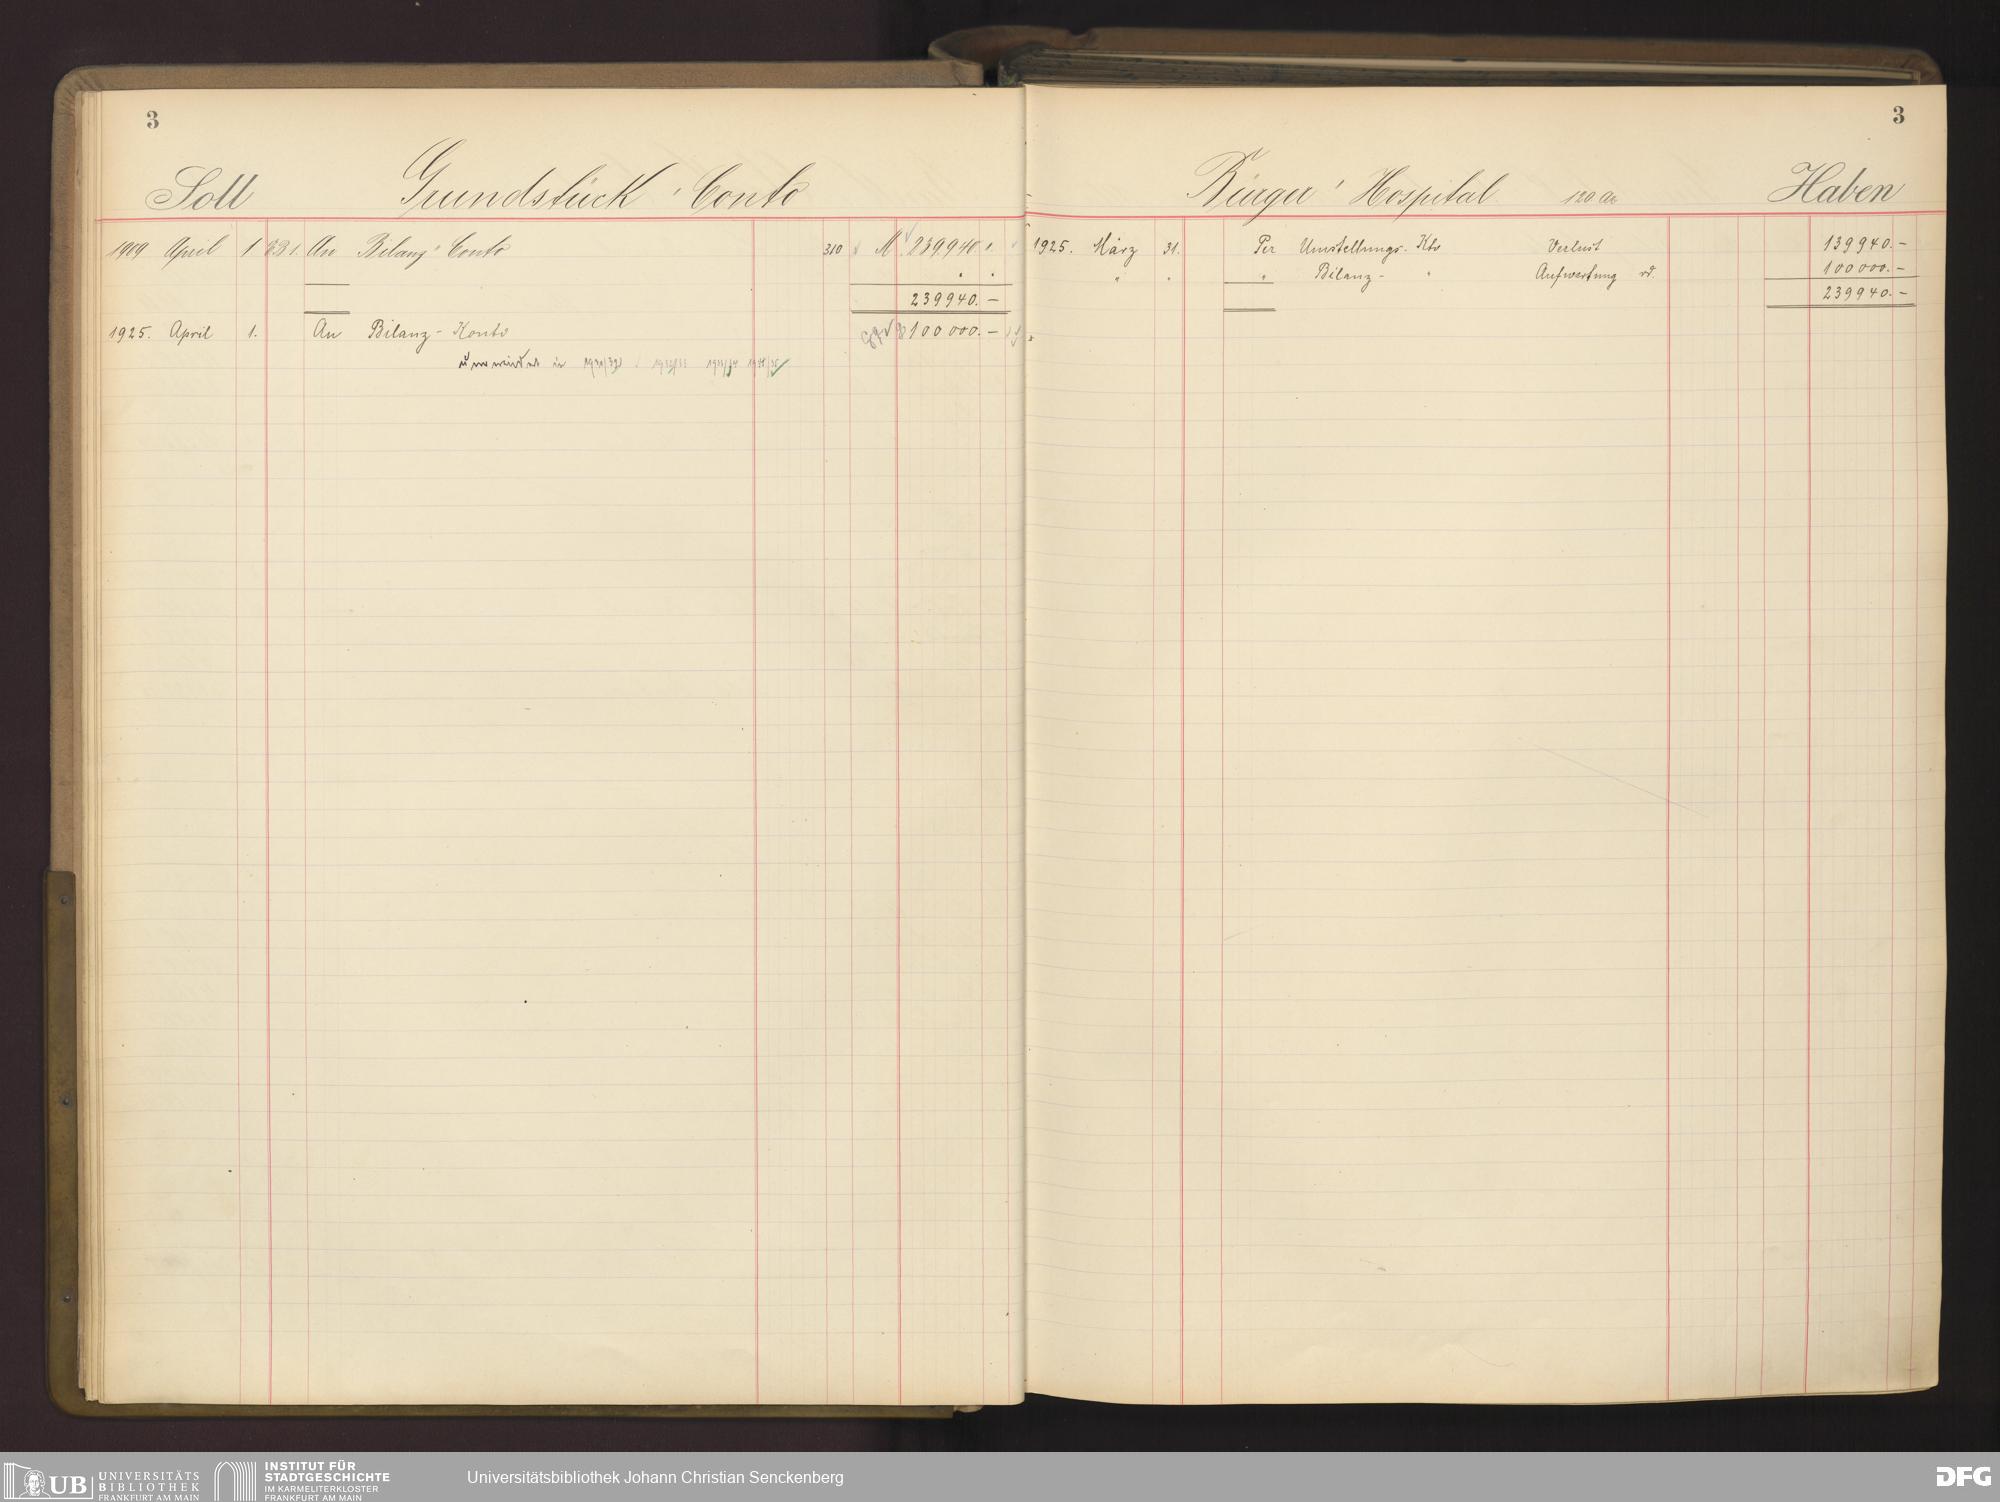 3
Soll Grundstück-Conto
1909 April 1. An Bilanz-Conto 310 M. 239,940.
239940.-
1925. April 1. An Bilanz-Konto 100000.-
in 1931/32
3
Bürger-Hospital 120 ar Haben
1925. März 31. Per Umstellungs-Kto Verlust 139940.-
" " " Bilanz- " Aufwertung rd. 100000.-
239940.-
UB UNIVERSITÄTS
BIBLIOTHEK
FRANKFURT AM MAIN
INSTITUT FÜR
STADTGESCHICHTE
IM KARMELITERKLOSTER
FRANKFURT AM MAIN
Universitätsbibliothek Johann Christian Senckenberg
DFG